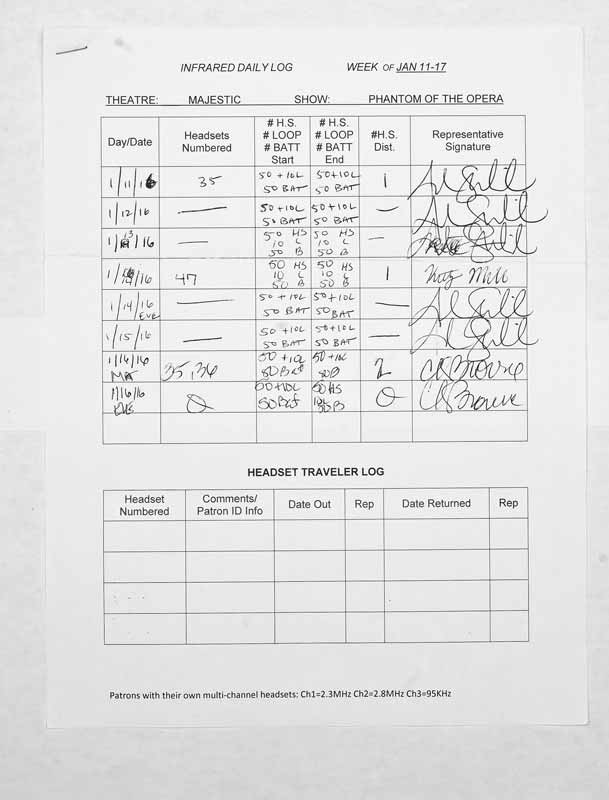 INFRARED DAILY LOG WEEK OF JAN 11-17
THEATRE: MAJESTIC SHOW: PHANTOM OF THE OPERA
Day/Date Headsets Numbered # H.S. # LOOP # BATT Start # H.S. # LOOP # BATT End #H.S. Dist. Representative Signature
1/11/16 35 50 + 10L 50 BAT 50+10L 50 BAT 1
1/12/16 — 50 + 10L 50 BAT 50+10L 50 BAT —
1/13/16 — 50 HS 10 L 50 B 50 HS 10 L 50 B —
1/14/16 47 50 HS 10 L 50 B 50 HS 10 L 50 B 1
1/14/16 EVE — 50 + 10L 50 BAT 50+10L 50 BAT —
1/15/16 — 50 + 10L 50 BAT 50+10L 50 BAT —
1/16/16 35,36 50 +10L 50+10L 50B 2 CR Browne
1/16/16 0 50+10L 50HS 10L 50B 0 CR Browne
HEADSET TRAVELER LOG
Headset Numbered Comments/ Patron ID Info Date Out Rep Date Returned Rep
Patrons with their own multi-channel headsets: Ch1=2.3MHz Ch2=2.8MHz Ch3=95KHz